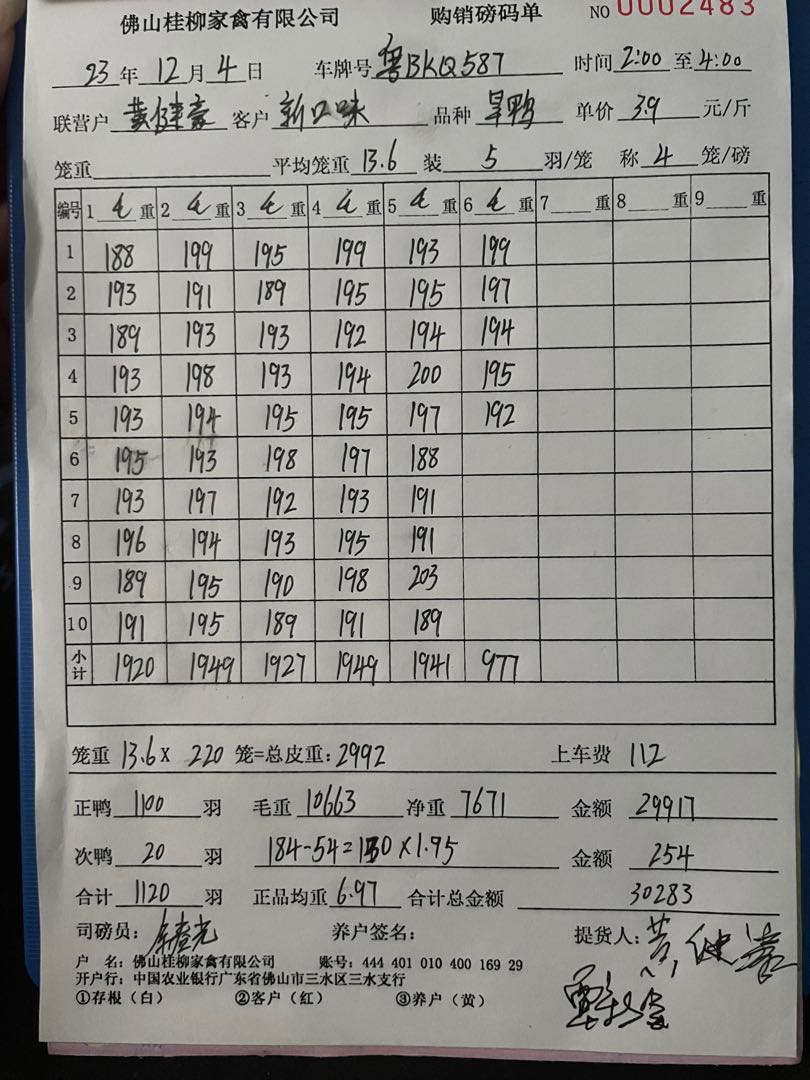 佛山桂柳家禽有限公司 购销磅码单 NO 0002483
23 年 12 月 4 日 车牌号 粤BKQ587 时间 2:00 至 4:00
联营户 黄健豪 客户 新口味 品种 旱鸭 单价 3.9 元/斤
笼重 平均笼重 13.6 装 5 羽/笼 称 4 笼/磅
编号 1 毛 重 2 毛 重 3 毛 重 4 毛 重 5 毛 重 6 毛 重 7 重 8 重 9 重
1 188 199 195 199 193 199
2 193 191 189 195 195 197
3 189 193 193 192 194 194
4 193 198 193 194 200 195
5 193 194 195 195 197 192
6 195 193 198 197 188
7 193 197 192 193 191
8 196 194 193 195 191
9 189 195 190 198 203
10 191 195 189 191 189
小计 1920 1949 1927 1949 1941 977
笼重 13.6 x 220 笼=总皮重: 2992 上车费 112
正鸭 1100 羽 毛重 10663 净重 7671 金额 29917
次鸭 20 羽 184-54=130×1.95 金额 254
合计 1120 羽 正品均重 6.97 合计总金额 30283
司磅员: 养户签名: 提货人: 黄健豪
户 名: 佛山桂柳家禽有限公司 账号: 444 401 010 400 169 29
开户行: 中国农业银行广东省佛山市三水区三水支行
①存根(白) ②客户(红) ③养户(黄)